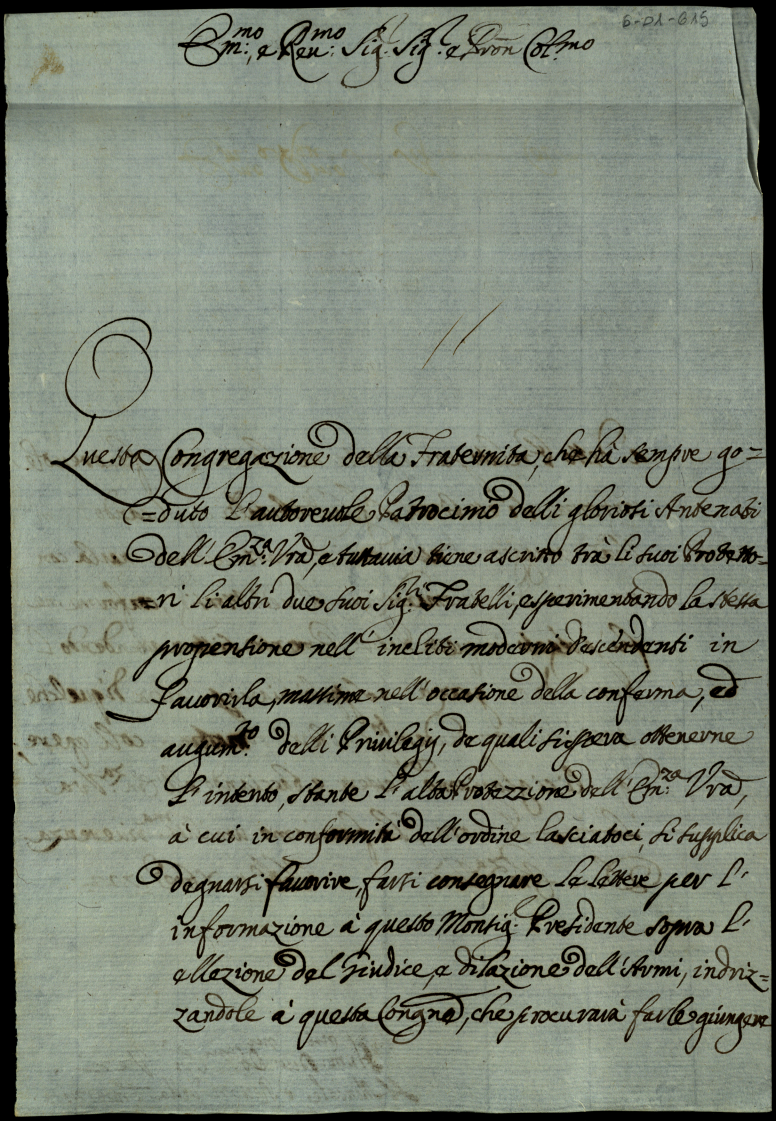 6-01-615
Em:mo, e Reu:mo Sig: Sig:r e Pron Col:mo
Questa Congregazione della Fraternita, che hà sempre go=
=duto l'autoreuole Patrocinio delli gloriosi Antenati
dell'Em:za Vrã, e tuttauia tiene ascritto trà li suoi Protetto=
=ri li altri due suoi Sig:ri Fratelli, esperimentando la stessa
propensione nell' incliti moderni Descendenti in
fauorirla, massime nell'occasione della conferma, ed
augum:to delli Priuilegij, de quali si spera ottenerne
l'intento, stante l'alta Protezzione dell'Em:za Vrã,
à cui in conformità dell'ordine lasciatoci, si supplica
degnarsi fauorire, farsi consegnare le lettere per l'
informazione à questo Monsig:r Presidente sopra l'
ellezione del Giudice, e dilazione dell'Armi, indriz=
zandole à questa Congne, che procurarà farle giungere